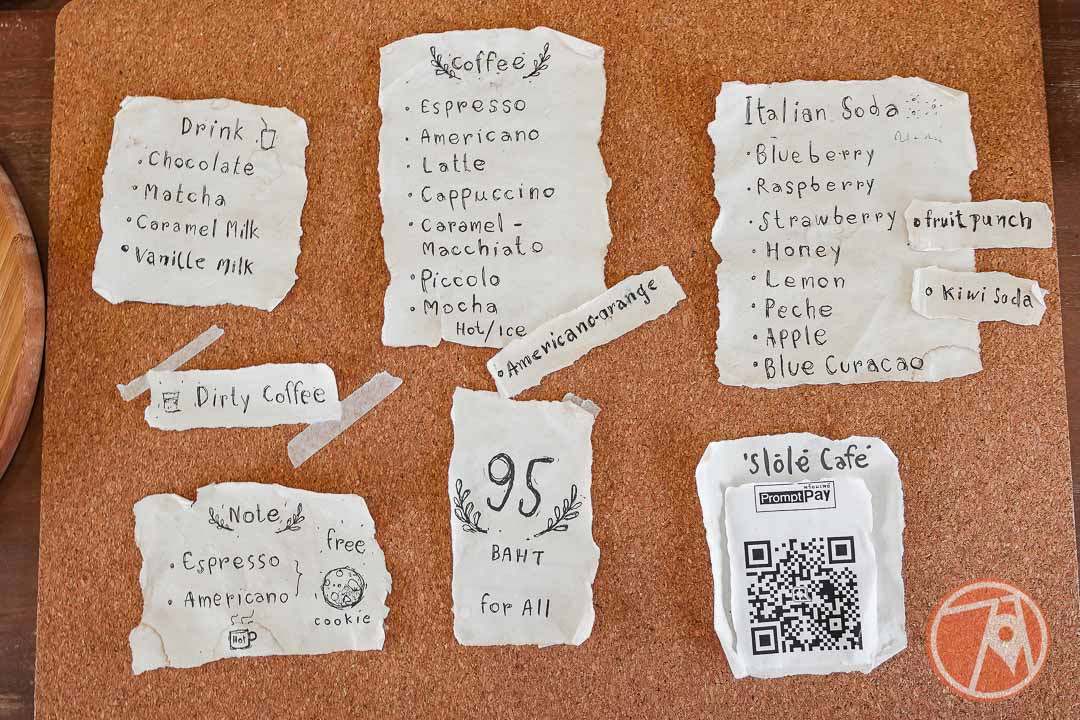 Drink
• Chocolate
• Matcha
• Caramel Milk
• Vanille Milk
Coffee
• Espresso
• Americano
• Latte
• Cappuccino
• Caramel -
Macchiato
• Piccolo
• Mocha
Hot/Ice
• Americano-orange
Italian Soda
• Blueberry
• Raspberry
• Strawberry
• Honey
• Lemon
• Peche
• Apple
• Blue Curacao
• fruit punch
• Kiwi Soda
Dirty Coffee
Note
• Espresso
• Americano
Hot
free
cookie
95
BAHT
for All
'Slole Cafe
พร้อมเพย์
PromptPay